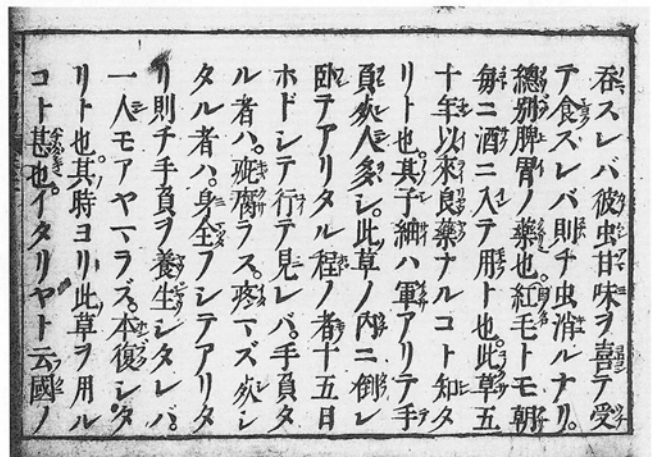 呑スレバ彼虫甘味ヲ喜テ受
テ食スレバ則チ虫消ルナリ。
總別脾胃ノ藥也。紅毛トモ朝
毎ニ酒ニ入テ用ト也。此草五
十年以來良藥ナルコト知タ
リト也。其子細ハ軍アリテ手
負死人多シ。此草ノ内ニ倒レ
臥テアリタル程ノ者十五日
ホドシテ行テ見レバ。手負タ
ル者ハ。疵腐ラス。疼マズ死シ
タル者ハ。身全フシテアリタ
リ則チ手負ヲ養生シタレバ。
一人モアヤマラズ。本復シタ
リト也。其時ヨリ此草ヲ用ル
コト甚也。イタリヤト云國ノ